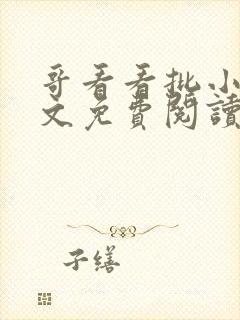 哥看看批小
文免費閱讀
子繕